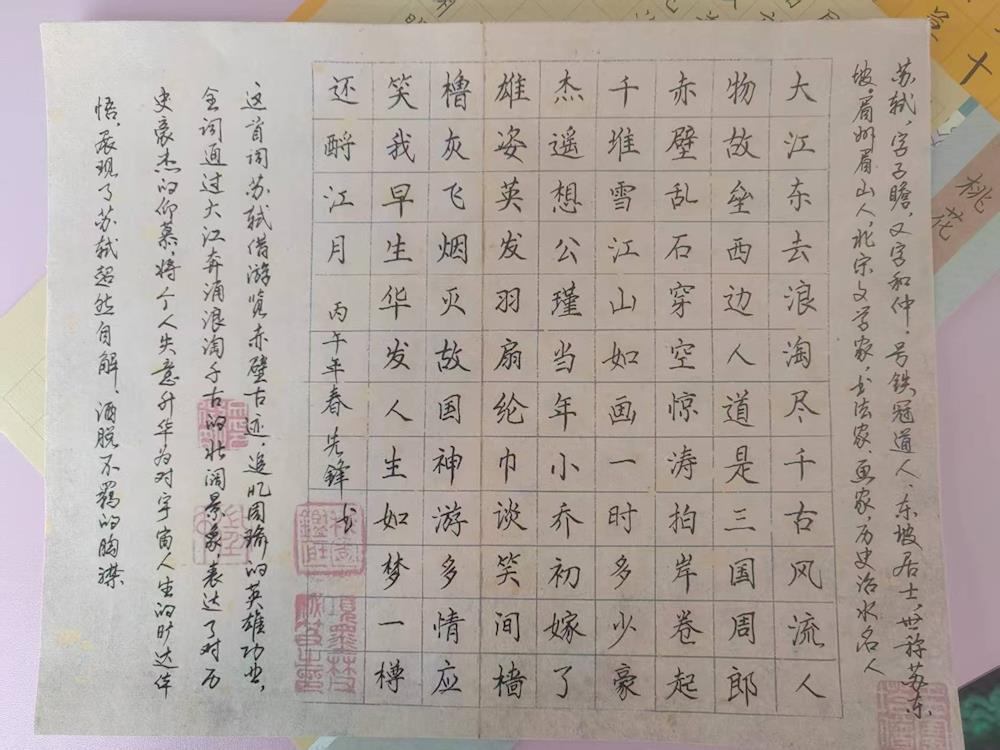 苏轼，字子瞻，又字和仲，号铁冠道人、东坡居士，世称苏东
坡，眉州眉山人，北宋文学家，书法家、画家，历史治水名人
大江东去浪淘尽千古风流人
物故垒西边人道是三国周郎
赤壁乱石穿空惊涛拍岸卷起
千堆雪江山如画一时多少豪
杰遥想公瑾当年小乔初嫁了
雄姿英发羽扇纶巾谈笑间樯
橹灰飞烟灭故国神游多情应
笑我早生华发人生如梦一樽
还酹江月 丙午年春先锋书
这首词苏轼借游览赤壁古迹，追忆周瑜的英雄功业，
全词通过大江奔涌浪淘千古的壮阔景象，表达了对历
史豪杰的仰慕，将个人失意升华为对宇宙人生的旷达体
悟，展现了苏轼超然自解、洒脱不羁的胸襟
桃花
十